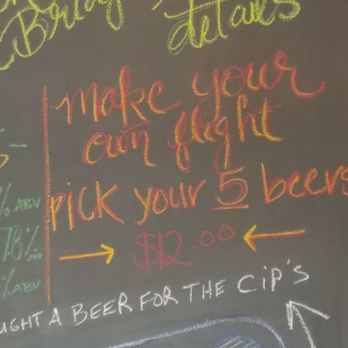 details
make your
own flight
pick your 5 beers
$12.00
% ABV
78%
% ABV
UGHT A BEER FOR THE CIP'S